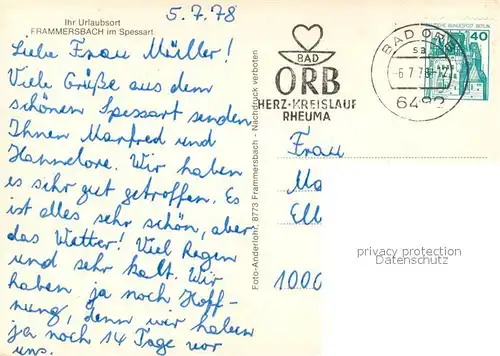 5.7.78
Ihr Urlaubsort
FRAMMERSBACH im Spessart
Liebe Frau Müller!
Viele Grüße aus dem
schönen Spessart senden
Ihnen Manfred und
Hannelore. Wir haben
es sehr gut getroffen. Es
ist alles sehr schön, aber
das Wetter! Viel Regen
und sehr kalt. Wir
haben ja noch Hoff-
nung, denn wir haben
ja noch 14 Tage vor
uns.
Foto-Anderlohr, 8773 Frammersbach - Nachdruck verboten
BAD
ORB
HERZ-KREISLAUF
RHEUMA
BAD ORB
sa
-6.7.78-12
DEUTSCHE BUNDESPOST BERLIN
40
Frau
Ma
Ell
1000
privacy protection
Datenschutz